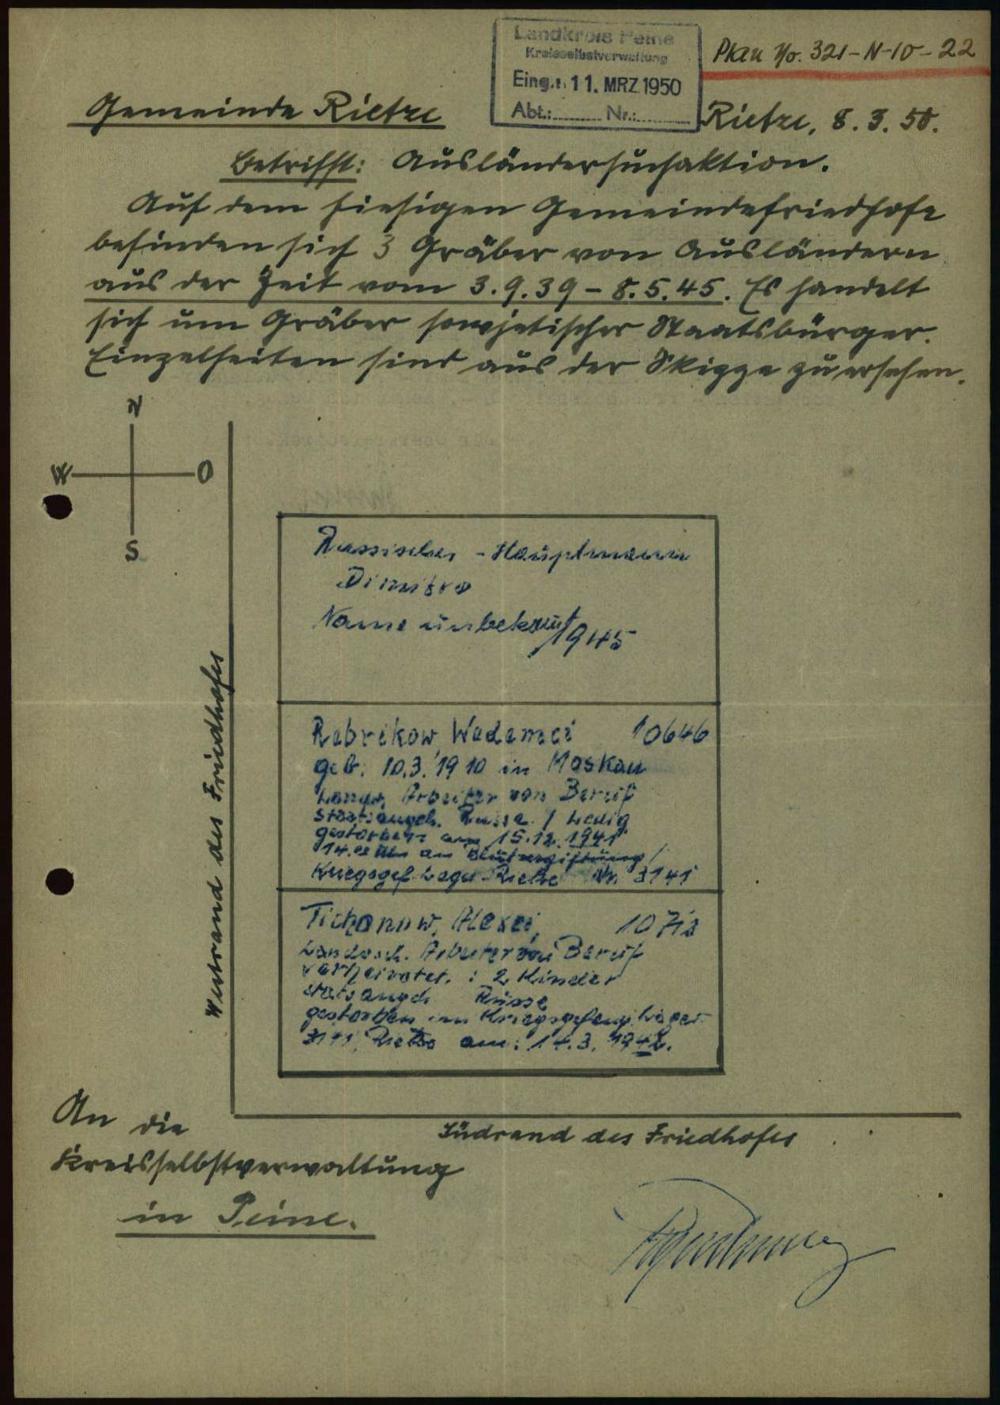 Landkreis Peine
Kreisselbstverwaltung
Eing.: 11. MRZ 1950
Abt.: Nr.:
Plan No. 321-N-10-22
Gemeinde Rietze
Rietze, 8. 3. 50.
Betrifft: Ausländersuchaktion.
Auf dem hiesigen Gemeindefriedhofe
befinden sich 3 Gräber von Ausländern
aus der Zeit vom 3.9.39 - 8.5.45. Es handelt
sich um Gräber sowjetischer Staatsbürger.
Einzelheiten sind aus der Skizze zu ersehen.
N
W O
S
Westrand des Friedhofes
Russischer - Hauptmann
Dimitro
Name unbekannt
1945
Rebrikow Wademei 10646
geb. 10.3.1910 in Moskau
Landw. Arbeiter von Beruf
Staatsangeh. Russe / Ledig
gestorben am 15.12.1941
14.00 Uhr an Blutvergiftung /
Kriegsgef. Lager Rietze Nr. 3141
Tichonow, Alexei,
Landwsch. Arbeiter von Beruf
verheiratet. : 2 Kinder
statsangeh Russe
gestorben im Kriegsgefang. Lager
Rietze am: 14.3. 1942.
Südrand des Friedhofes
An die
Kreisselbstverwaltung
in Peine.